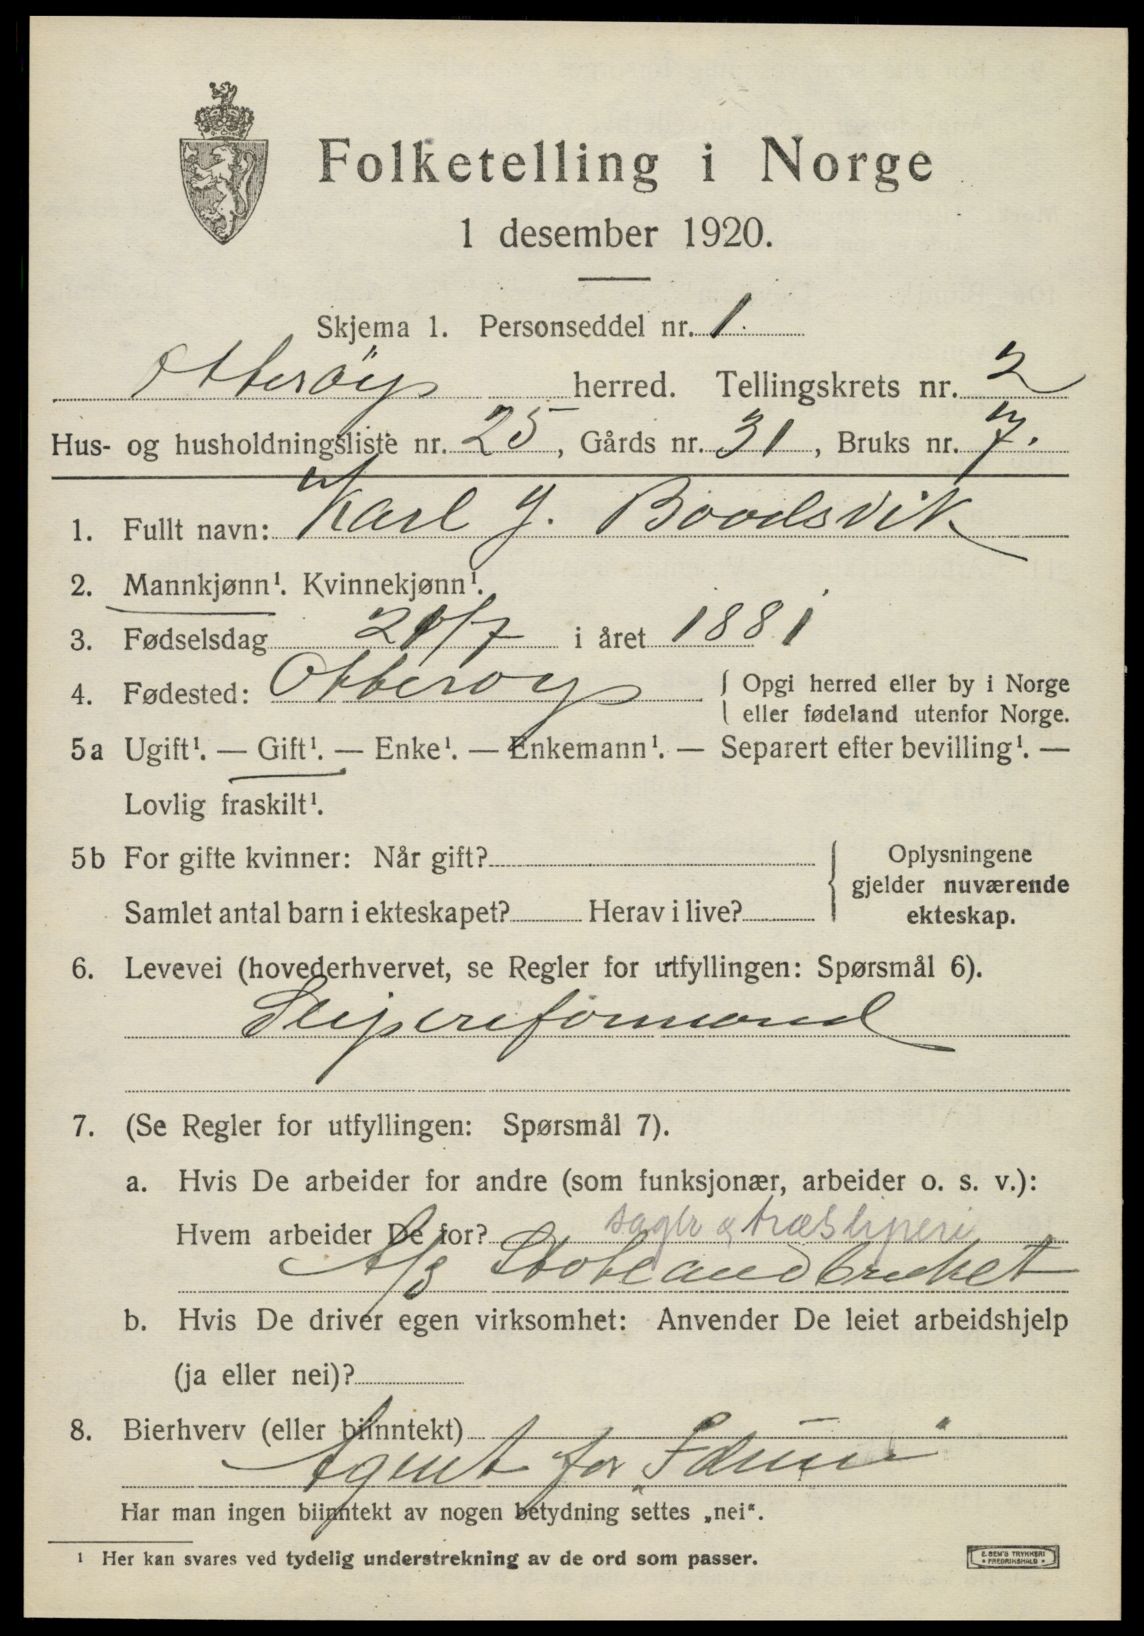 Folketelling i Norge
1 desember 1920.
Skjema 1. Personseddel nr. 1.
Otterøys herred. Tellingskrets nr. 2
Hus- og husholdningsliste nr. 25, Gårds nr. 31, Bruks nr. 7.
1. Fullt navn: Karl J. Boodsvik
2. Mannkjønn¹. Kvinnekjønn¹.
3. Fødselsdag 21/7 i året 1881
4. Fødested: Otterøys { Opgi herred eller by i Norge
eller fødeland utenfor Norge.
5a Ugift¹. — Gift¹. — Enke¹. — Enkemann¹. — Separert efter bevilling¹. —
Lovlig fraskilt¹.
5b For gifte kvinner: Når gift? { Oplysningene
gjelder nuværende
Samlet antal barn i ekteskapet? Herav i live? ekteskap.
6. Levevei (hovederhvervet, se Regler for utfyllingen: Spørsmål 6).
Sliperiformand
7. (Se Regler for utfyllingen: Spørsmål 7).
a. Hvis De arbeider for andre (som funksjonær, arbeider o. s. v.):
Hvem arbeider De for? sagbr & træsliperi
A/S
b. Hvis De driver egen virksomhet: Anvender De leiet arbeidshjelp
(ja eller nei)?
8. Bierhverv (eller biinntekt)
Agent for „Idun“
Har man ingen biinntekt av nogen betydning settes „nei“.
¹ Her kan svares ved tydelig understrekning av de ord som passer.
E. SEM'S TRYKKERI
• FREDRIKSHALD •